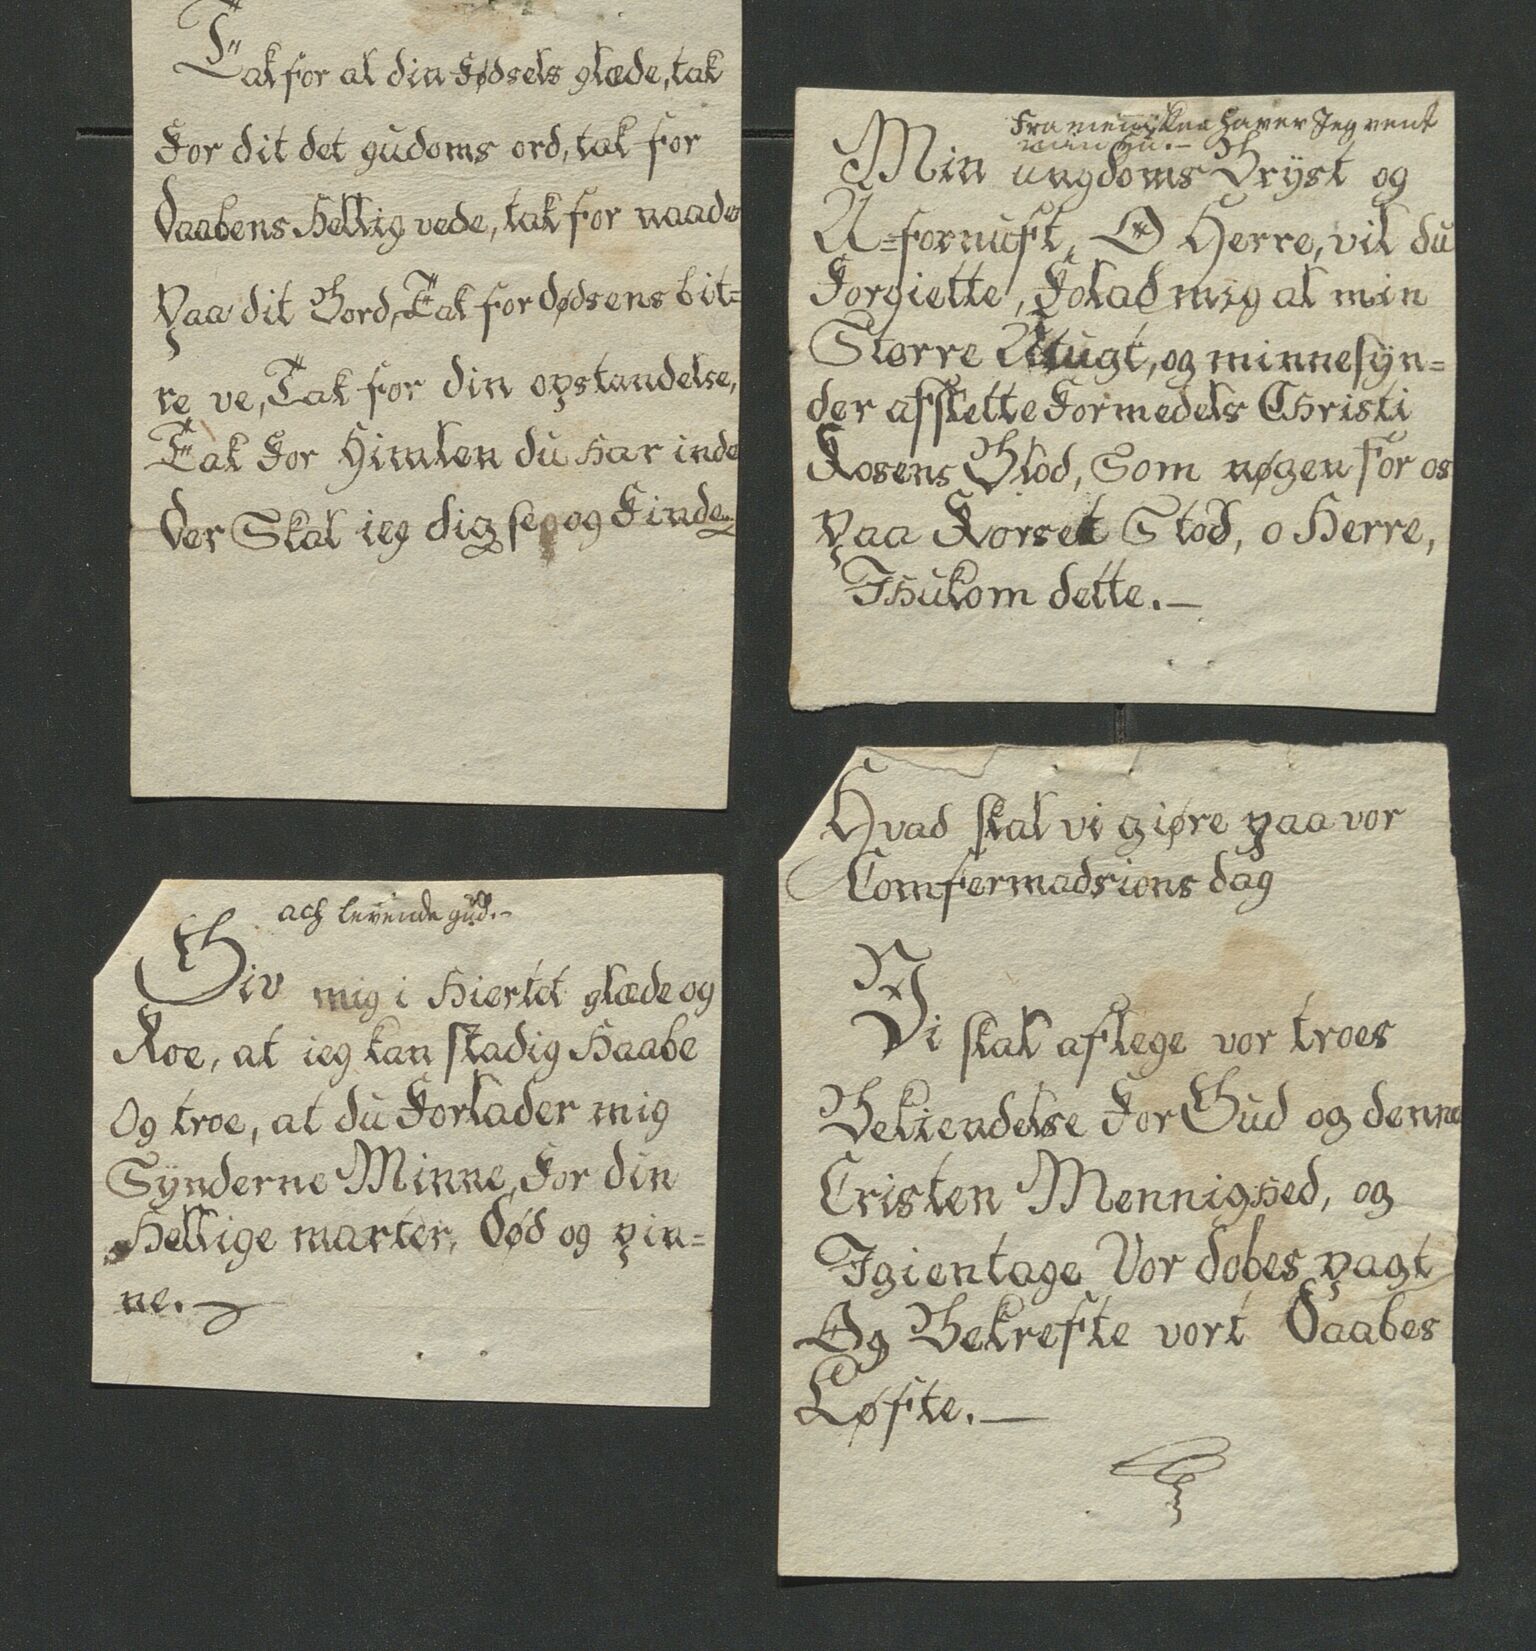 Tak for al din Fødsels glæde, tak
For dit det gudoms ord, tak for
Daabens Hellig vede, tak for naade
Paa dit Bord, Tak for dødsens bit=
re ve, Tak for din opstandelse,
Tak For Himlen du har inde
Der Skal ieg dig se og Finde
Fra menisken haver Jeg vent
Min ungdoms Brÿst og
U=fornuft, O Herre, vil du
Forgiette, Folad mig al min
Storre Utugt, og minnesÿn=
der afslette Formedels Christi
Rosens Blod, Som nøgen for os
paa Korset Stod, o Herre,
Ihukom dette.—
ach levende gud.-
Giv mig i Hiertet glæde og
Roe, at ieg kan stadig Haabe
Og troe, at du Forlader mig
Sÿnderne Minne, For din
Hellige marter, Død og pin=
ne.—
Hvad skal vi giøre paa vor
Comfermadsions dag
Vi skal aflege vor troes
Bekiendelse For Gud og denne
Cristen Mennighed, og
Igientage Vor dobes pagt
Og Bekrefte vort Daabes
Løfte.—